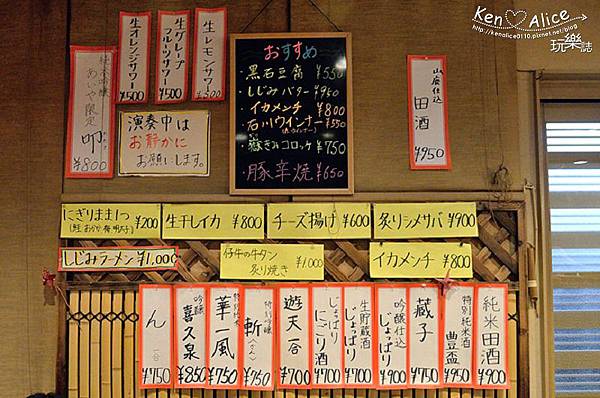 Ken♡Alice
http://kenalice0110.pixnet.net/blog
玩樂誌
生レモンサワー
¥500
生グレープフルーツサワー
¥500
生オレンジサワー
¥500
純米吟醸
あいや限定
¥800
演奏中は
お静かに
お願いします。
おすすめ
・黒石豆腐 ¥550
・しじみバター ¥950
・イカメンチ ¥800
・石川ウインナー ¥550
・嶽きみコロッケ ¥750
・豚辛焼 ¥650
山廃仕込
田酒
¥950
にぎりまま1つ ¥200
生干しイカ ¥800
チーズ揚げ ¥600
炙りシメサバ ¥900
しじみラーメン ¥1,000
仔牛の牛タン
炙り焼き ¥1,000
イカメンチ ¥800
純米田酒
¥900
特別純米酒
豊盃
¥950
蔵子
¥750
吟醸仕込
じょっぱり
¥900
生貯蔵酒
じょっぱり
¥700
じょっぱり
にごり酒
¥700
遊天 一合
¥700
特別吟醸
斬
¥950
特別純米
華一風
¥750
吟醸
喜久泉
¥850
ん
一合
¥750